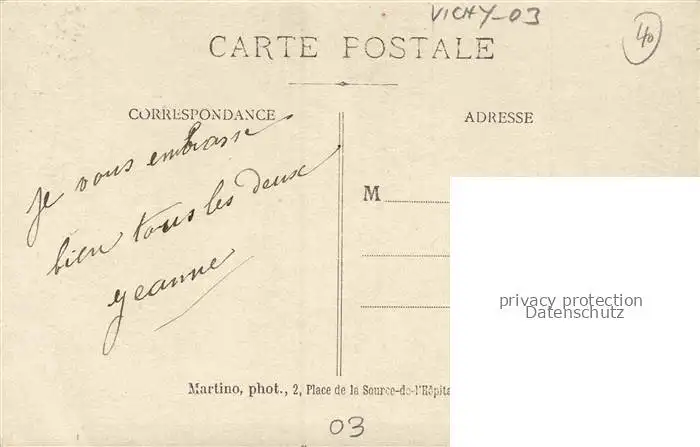 VICHY-03
40
CARTE POSTALE
CORRESPONDANCE
ADRESSE
Je vous embrasse
bien tous les deux
Jeanne
M
privacy protection
Datenschutz
Martino, phot., 2, Place de la Source-de-l'Hôpita
03